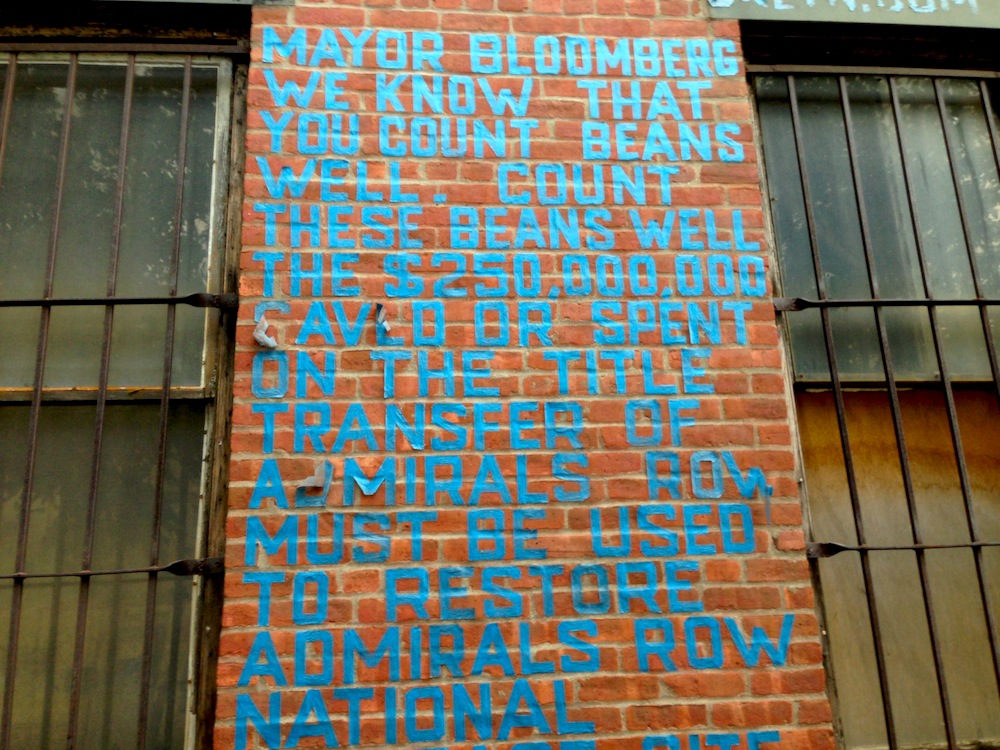 MAYOR BLOOMBERG
WE KNOW THAT
YOU COUNT BEANS
WELL. COUNT
THESE BEANS WELL
THE $250,000,000
OR SPENT
ON THE TITLE
TRANSFER OF
ADMIRALS ROW
MUST BE USED
TO RESTORE
ADMIRALS ROW
NATIONAL
SITE